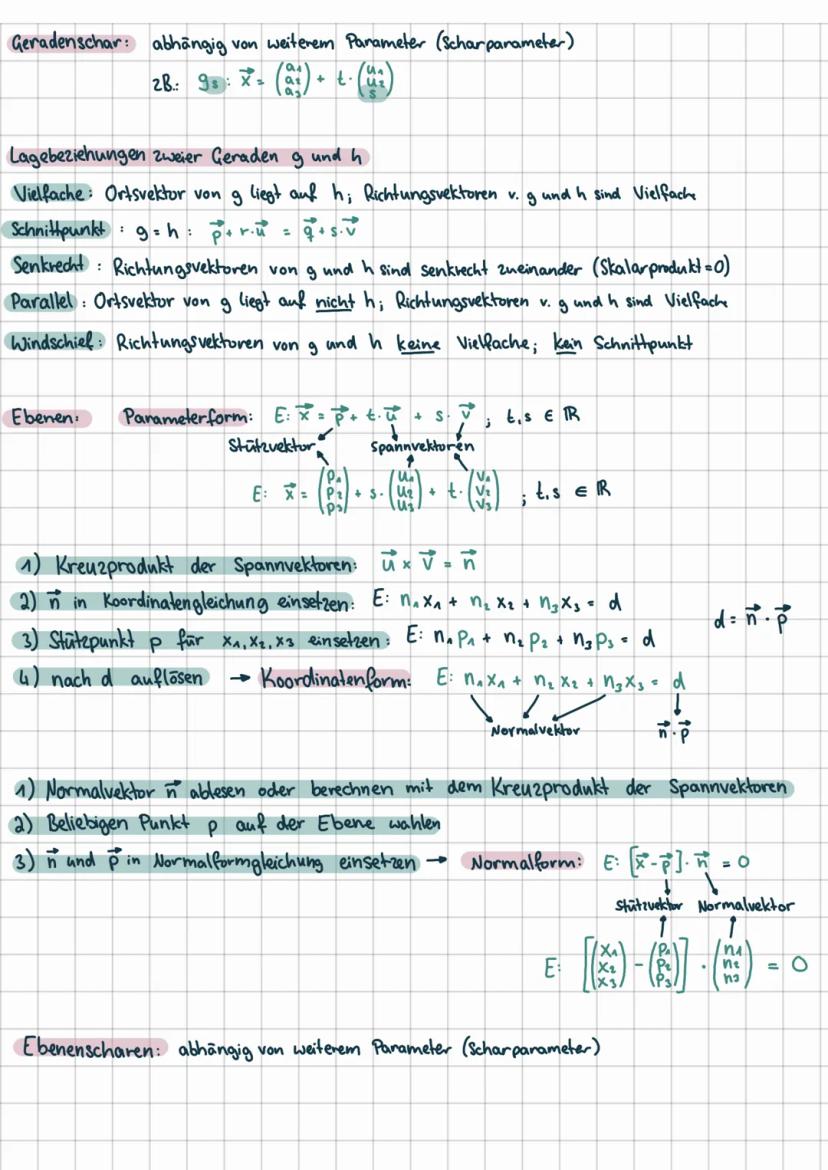 Geradenschar: abhängig von weiterem Parameter (Scharparameter)
zB.: gs: x⃗ = (a1 a2 a3) + t · (u1 u2 s)
Lagebeziehungen zweier Geraden g und h
Vielfache: Ortsvektor von g liegt auf h; Richtungsvektoren v. g und h sind Vielfache
Schnittpunkt : g = h : p⃗ + r·u⃗ = q⃗ + s·v⃗
Senkrecht : Richtungsvektoren von g und h sind senkrecht zueinander (Skalarprodukt=0)
Parallel : Ortsvektor von g liegt auf nicht h; Richtungsvektoren v. g und h sind Vielfache
Windschief: Richtungsvektoren von g und h keine Vielfache; kein Schnittpunkt
Ebenen: Parameterform: E: x⃗ = p⃗ + t·u⃗ + s·v⃗ ; t,s ∈ ℝ
Stützvektor Spannvektoren
E: x⃗ = (p1 p2 p3) + s·(u1 u2 u3) + t·(v1 v2 v3) ; t,s ∈ ℝ
1) Kreuzprodukt der Spannvektoren: u⃗ × v⃗ = n⃗
2) n⃗ in Koordinatengleichung einsetzen: E: n1x1 + n2x2 + n3x3 = d
d = n⃗ · p⃗
3) Stützpunkt p für x1,x2,x3 einsetzen: E: n1p1 + n2p2 + n3p3 = d
4) nach d auflösen → Koordinatenform: E: n1x1 + n2x2 + n3x3 = d
Normalvektor n⃗ · p⃗
1) Normalvektor n⃗ ablesen oder berechnen mit dem Kreuzprodukt der Spannvektoren
2) Beliebigen Punkt p auf der Ebene wahlen
3) n⃗ und p⃗ in Normalformgleichung einsetzen → Normalform: E: [x⃗ - p⃗] · n⃗ = 0
Stützvektor Normalvektor
E: [(x1 x2 x3) - (p1 p2 p3)] · (n1 n2 n3) = 0
Ebenenscharen: abhängig von weiterem Parameter (Scharparameter)